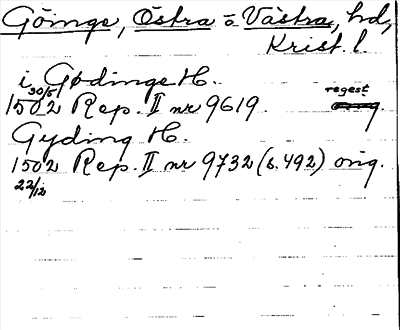 Göinge, Östra o Västra, hd,
Krist. l.
i Gødinge H.
1502 30/5 Rep. II nr 9619. regest
Gyding H.
1502 Rep. II nr 9732 (s. 492) orig.
22/12